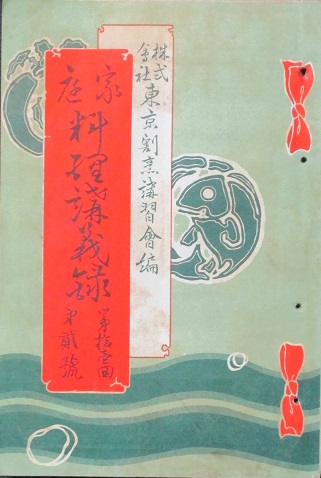 株式
會社
東京割烹講習會編
家庭
料理講義録
第拾壱回
第貳號